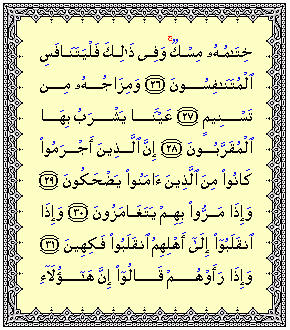 خِتَٰمُهُۥ مِسْكٌۭ ۚ وَفِى ذَٰلِكَ فَلْيَتَنَافَسِ
ٱلْمُتَنَٰفِسُونَ ﴿٢٦﴾ وَمِزَاجُهُۥ مِن
تَسْنِيمٍ ﴿٢٧﴾ عَيْنًۭا يَشْرَبُ بِهَا
ٱلْمُقَرَّبُونَ ﴿٢٨﴾ إِنَّ ٱلَّذِينَ أَجْرَمُوا۟
كَانُوا۟ مِنَ ٱلَّذِينَ ءَامَنُوا۟ يَضْحَكُونَ ﴿٢٩﴾
وَإِذَا مَرُّوا۟ بِهِمْ يَتَغَامَزُونَ ﴿٣٠﴾ وَإِذَا
ٱنقَلَبُوٓا۟ إِلَىٰٓ أَهْلِهِمُ ٱنقَلَبُوا۟ فَكِهِينَ ﴿٣١﴾
وَإِذَا رَأَوْهُمْ قَالُوٓا۟ إِنَّ هَٰٓؤُلَآءِ